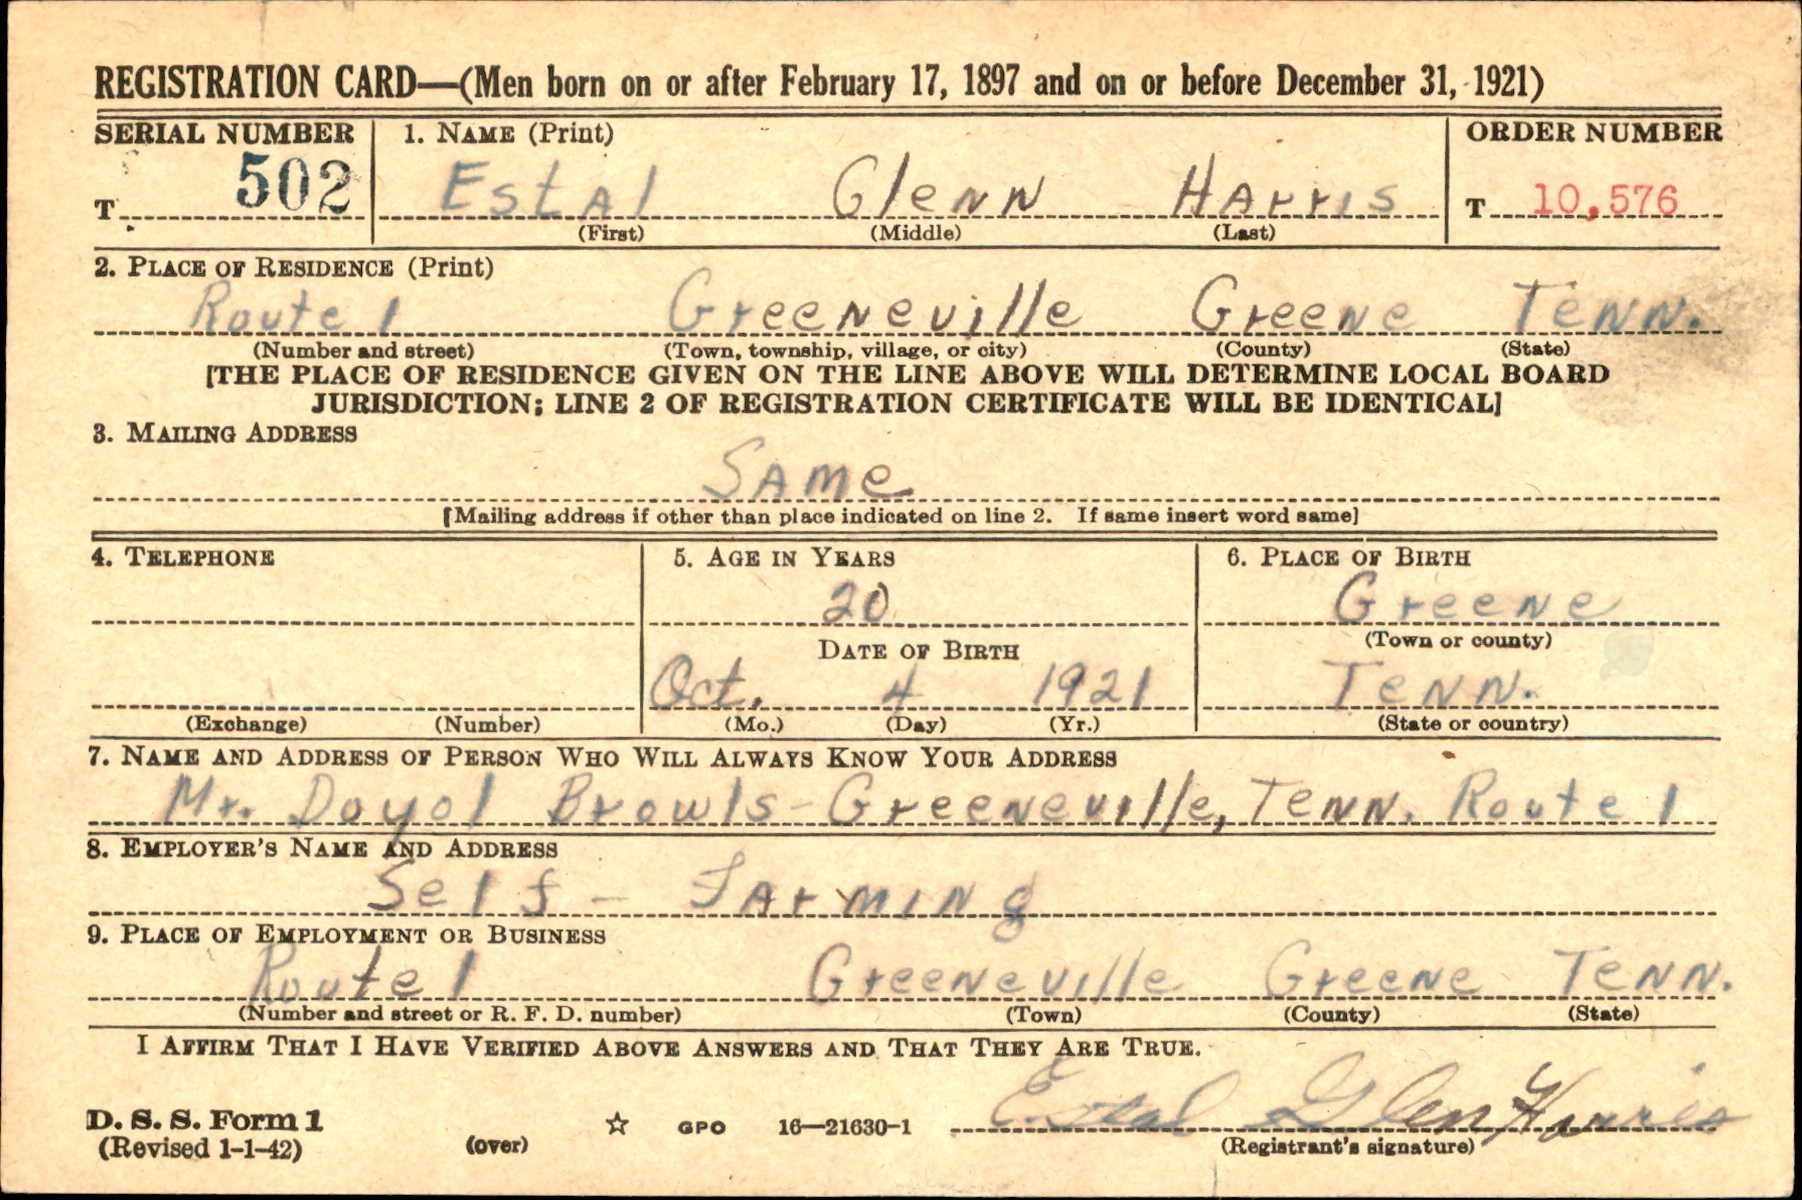 REGISTRATION CARD—(Men born on or after February 17, 1897 and on or before December 31, 1921)
SERIAL NUMBER 1. NAME (Print) ORDER NUMBER
T 502 Estal Glenn Harris T 10,576
(First) (Middle) (Last)
2. PLACE OF RESIDENCE (Print)
Route 1 Greeneville Greene Tenn.
(Number and street) (Town, township, village, or city) (County) (State)
[THE PLACE OF RESIDENCE GIVEN ON THE LINE ABOVE WILL DETERMINE LOCAL BOARD
JURISDICTION; LINE 2 OF REGISTRATION CERTIFICATE WILL BE IDENTICAL]
3. MAILING ADDRESS
Same
[Mailing address if other than place indicated on line 2. If same insert word same]
4. TELEPHONE 5. AGE IN YEARS 6. PLACE OF BIRTH
20 Greene
DATE OF BIRTH (Town or county)
Oct. 4 1921 Tenn.
(Exchange) (Number) (Mo.) (Day) (Yr.) (State or country)
7. NAME AND ADDRESS OF PERSON WHO WILL ALWAYS KNOW YOUR ADDRESS
Mr. Doyol Browls - Greeneville, Tenn. Route 1
8. EMPLOYER'S NAME AND ADDRESS
Self - Farming
9. PLACE OF EMPLOYMENT OR BUSINESS
Route 1 Greeneville Greene Tenn.
(Number and street or R. F. D. number) (Town) (County) (State)
I AFFIRM THAT I HAVE VERIFIED ABOVE ANSWERS AND THAT THEY ARE TRUE.
D. S. S. Form 1 Estal Glen Harris
(Revised 1-1-42) (over) ☆ GPO 16—21630-1 (Registrant's signature)